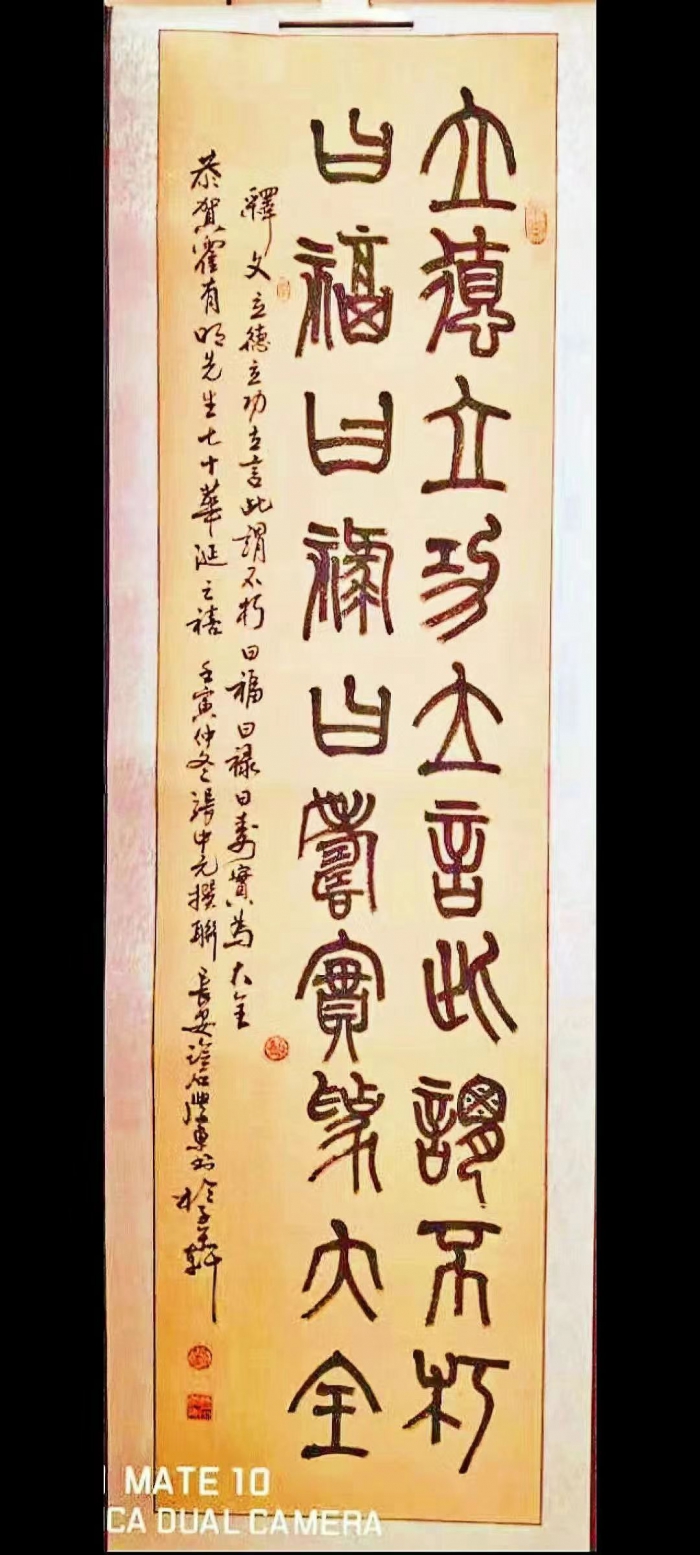 立德立功立言此謂不朽
曰福曰祿曰壽實為大全
釋文立德立功立言此謂不朽曰福曰禄曰壽實為大全
恭賀霍有明先生七十華誕之禧 壬寅仲冬張中元撰聯 長安
MATE 10
CA DUAL CAMERA